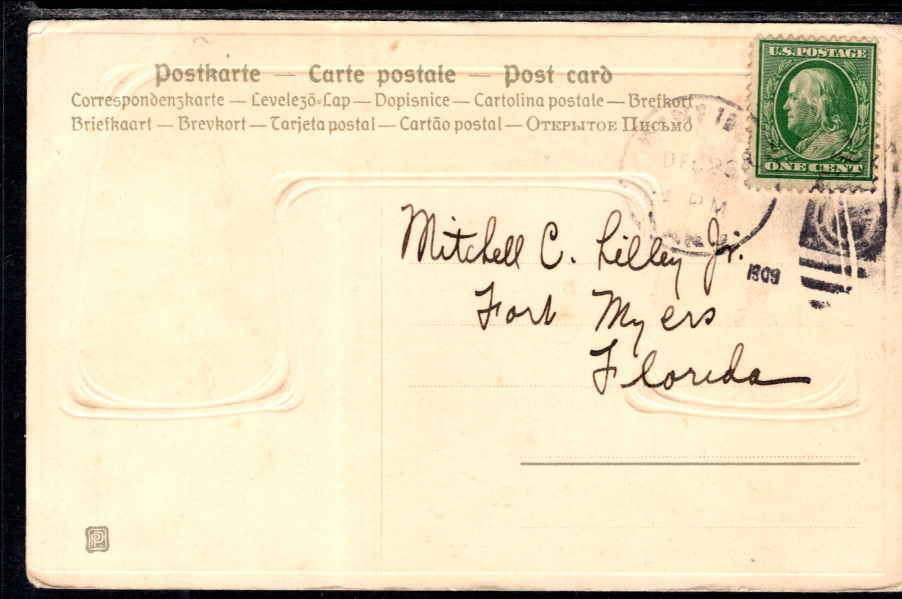 Postkarte — Carte postale — Post card
Correspondenzkarte — Levelező-Lap — Dopisnice — Cartolina postale — Brefkort
Briefkaart — Brevkort — Tarjeta postal — Cartão postal — Открытое Письмо
U.S. POSTAGE
ONE CENT
DEC 23
PM
1909
Mitchell C. Lilley Jr.
Fort Myers
Florida